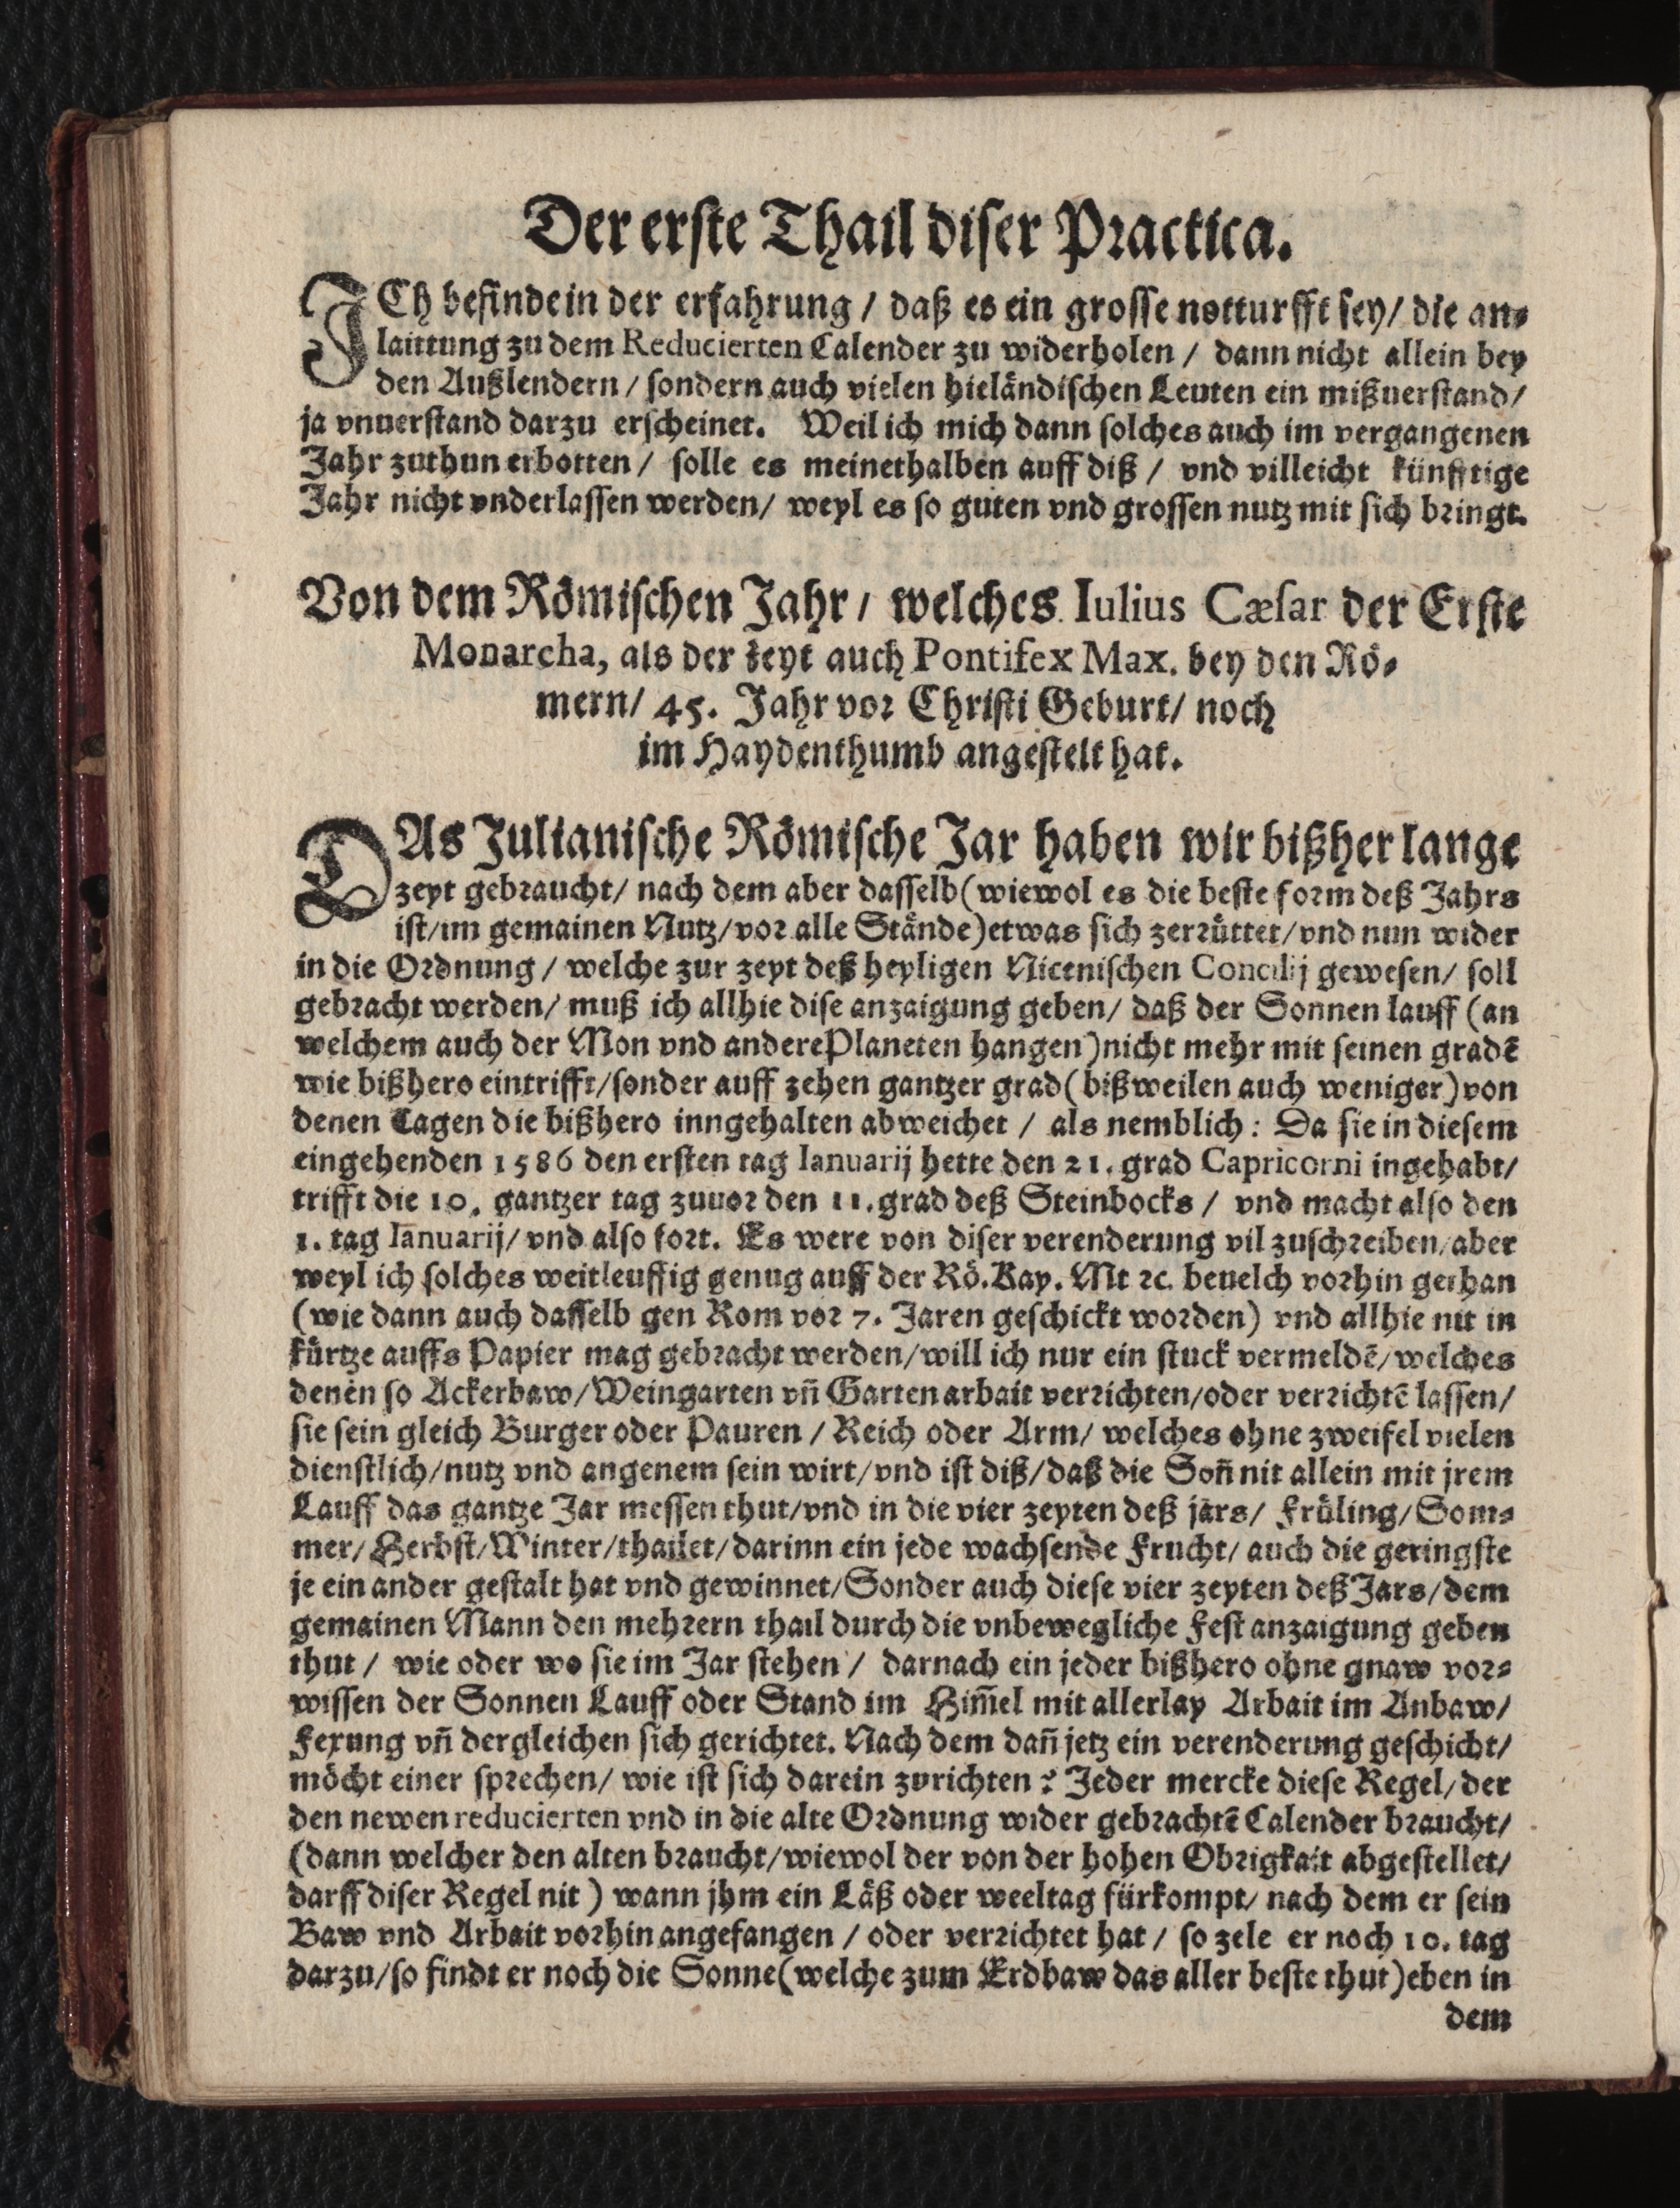 Der erste Thail diser Practica.
ICh befinde in der erfahrung / daß es ein grosse notturfft sey / die an-
laittung zu dem Reducierten Calender zu widerholen / dann nicht allein bey
den Außlendern / sondern auch vielen hieländischen Leuten ein mißuerstand /
ja vnuerstand darzu erscheinet. Weil ich mich dann solches auch im vergangenen
Jahr zuthun erbotten / solle es meinethalben auff diß / vnd villeicht künfftige
Jahr nicht vnderlassen werden / weyl es so guten vnd grossen nutz mit sich bringt.
Von dem Römischen Jahr / welches Iulius Cæsar der Erste
Monarcha, als der zeyt auch Pontifex Max. bey den Rö-
mern / 45. Jahr vor Christi Geburt / noch
im Haydenthumb angestelt hat.
DAs Julianische Römische Jar haben wir bißher lange
zeyt gebraucht / nach dem aber dasselb (wiewol es die beste form deß Jahrs
ist / im gemainen Nutz / vor alle Stände) etwas sich zerrüttet / vnd nun wider
in die Ordnung / welche zur zeyt deß heyligen Nicenischen Concilij gewesen / soll
gebracht werden / muß ich allhie dise anzaigung geben / daß der Sonnen lauff (an
welchem auch der Mon vnd andere Planeten hangen) nicht mehr mit seinen gradẽ
wie bißhero eintrifft / sonder auff zehen gantzer grad (bißweilen auch weniger) von
denen Tagen die bißhero inngehalten abweichet / als nemblich : Da sie in diesem
eingehenden 1586 den ersten tag Ianuarij hette den 21. grad Capricorni ingehabt /
trifft die 10. gantzer tag zuuor den 11. grad deß Steinbocks / vnd macht also den
1. tag Ianuarij / vnd also fort. Es were von diser verenderung vil zuschreiben / aber
weyl ich solches weitleuffig genug auff der Rö. Kay. Mt ꝛc. beuelch vorhin gethan
(wie dann auch dasselb gen Rom vor 7. Jaren geschickt worden) vnd allhie nit in
kürtze auffs Papier mag gebracht werden / will ich nur ein stuck vermeldẽ / welches
denen so Ackerbaw / Weingarten vñ Garten arbait verrichten / oder verrichtẽ lassen /
sie sein gleich Burger oder Pauren / Reich oder Arm / welches ohne zweifel vielen
dienstlich / nutz vnd angenem sein wirt / vnd ist diß / daß die Soñ nit allein mit jrem
Lauff das gantze Jar messen thut / vnd in die vier zeyten deß jars / Früling / Som-
mer / Herbst / Winter / thailet / darinn ein jede wachsende Frucht / auch die geringste
je ein ander gestalt hat vnd gewinnet / Sonder auch diese vier zeyten deß Jars / dem
gemainen Mann den mehrern thail durch die vnbewegliche Fest anzaigung geben
thut / wie oder wo sie im Jar stehen / darnach ein jeder bißhero ohne gnaw vor-
wissen der Sonnen Lauff oder Stand im Him̃el mit allerlay Arbait im Anbaw /
Fexung vñ dergleichen sich gerichtet. Nach dem dañ jetz ein verenderung geschicht /
möcht einer sprechen / wie ist sich darein zurichten ? Jeder mercke diese Regel / der
den newen reducierten vnd in die alte Ordnung wider gebrachtẽ Calender braucht /
(dann welcher den alten braucht / wiewol der von der hohen Obrigkait abgestellet /
darff diser Regel nit) wann jhm ein Läß oder weeltag fürkompt / nach dem er sein
Baw vnd Arbait vorhin angefangen / oder verrichtet hat / so zele er noch 10. tag
darzu / so findt er noch die Sonne (welche zum Erdbaw das aller beste thut) eben in
dem